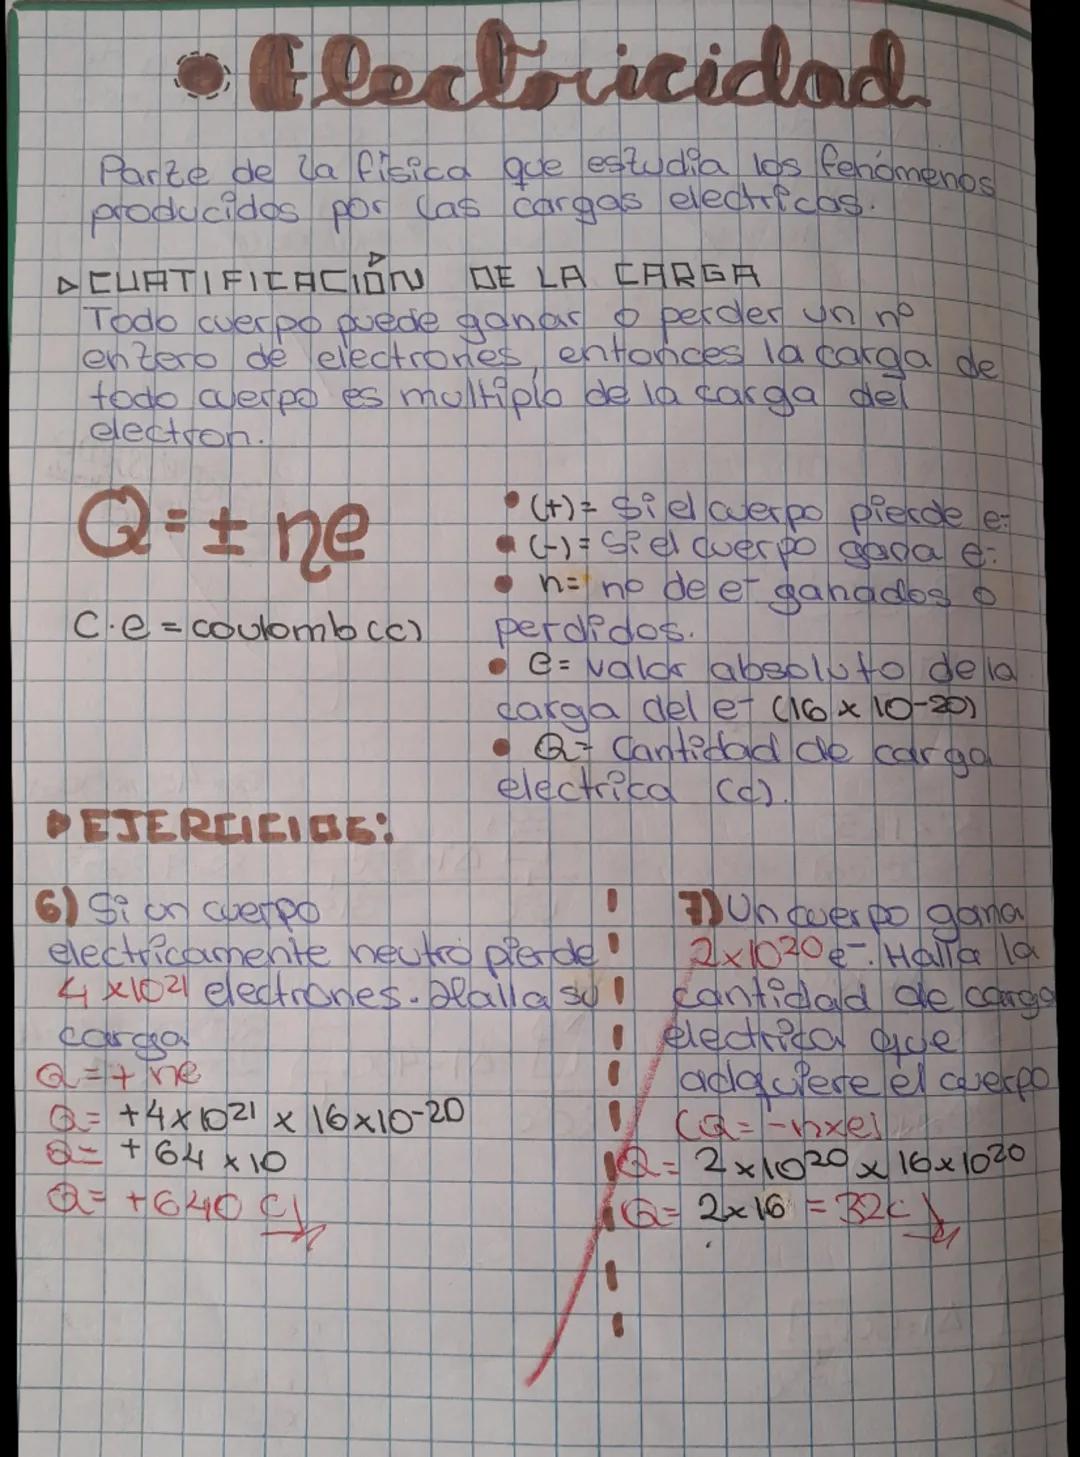 Electricidad
Parte de la física que estudia los fenómenos
producidos por las cargas electricas.
CUATIFICACIÓN DE LA CARGA
Todo cuerpo puede ganar o perder un nº
entero de electrones, entonces la carga de
todo cuerpo es multiplo de la carga del
electron.
Q = ± ne
C.e = coulomb (c)
• (+) = Si el cuerpo pierde e-
• (-) = Si el cuerpo gana e-
• n = nº de e- ganados o
perdidos.
• e = valor absoluto de la
carga del e- (16 x 10-20)
• Q = Cantidad de carga
electrica (c).
EJERCICIOS:
6) Si un cuerpo
electricamente neutro pierde
4 x 10²¹ electrones. Halla su
carga
Q = + ne
Q = +4 x 10²¹ x 16 x 10-20
Q = + 64 x 10
Q = + 640 C
7) Un cuerpo gana
2 x 10²⁰ e-. Halla la
cantidad de carga
electrica que
adquiere el cuerpo
(Q = -n x e)
Q = 2 x 10²⁰ x 16 x 10²⁰
Q = 2 x 16 = 32c